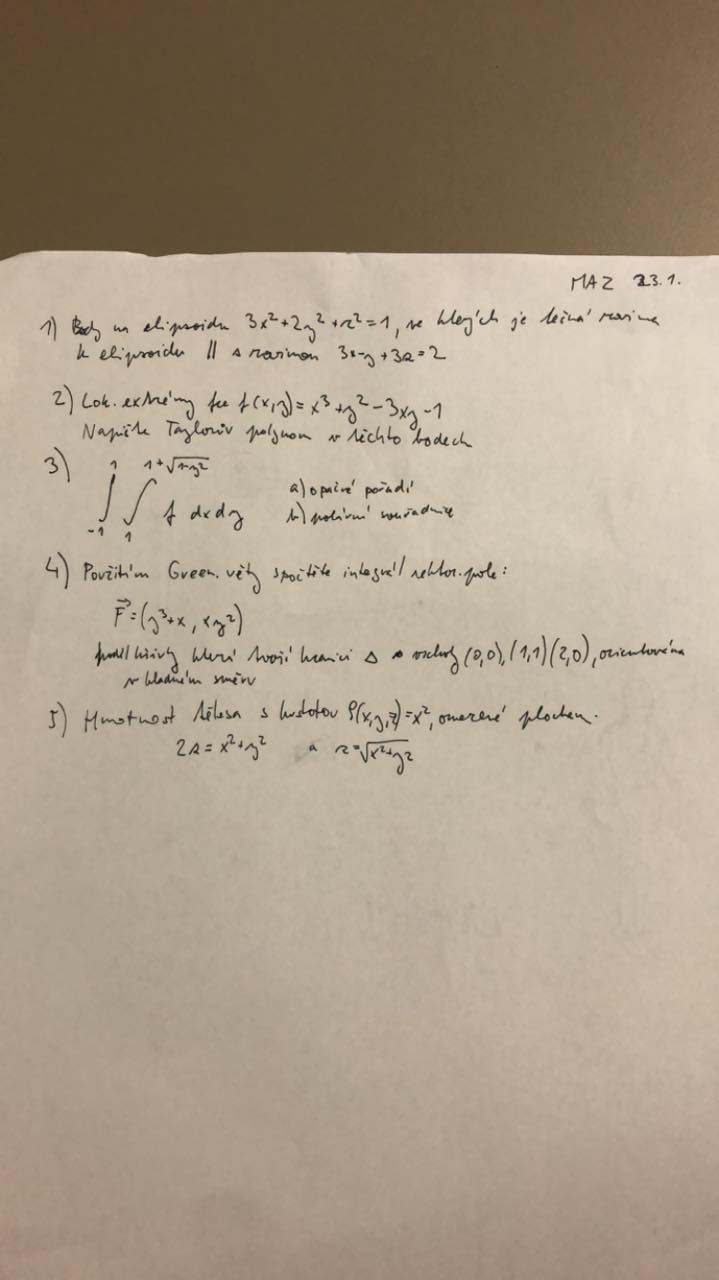 MAZ 23.1.
1) Body na elipsoidu 3x²+2y²+z²=1, ve kterých je tečná rovina
k elipsoidu || s rovinou 3x-y+3z=2
2) Lok. extrémy fce f(x,y)=x³+y²-3xy-1
Napište Taylorův polynom v těchto bodech
3) ∫₋₁¹ ∫₁^(1+√(1-y²)) f dxdy
a) opačné pořadí
b) polární souřadnice
4) Použitím Green. věty spočtěte integrál vektor. pole:
F⃗=(y³+x, xy²)
podél křivky která tvoří hranici Δ s vrcholy (0,0),(1,1)(2,0), orientována
v kladném směru
5) Hmotnost tělesa s hustotou ρ(x,y,z)=x², omezené plochami
2z=x²+y² a z=√(x²+y²)